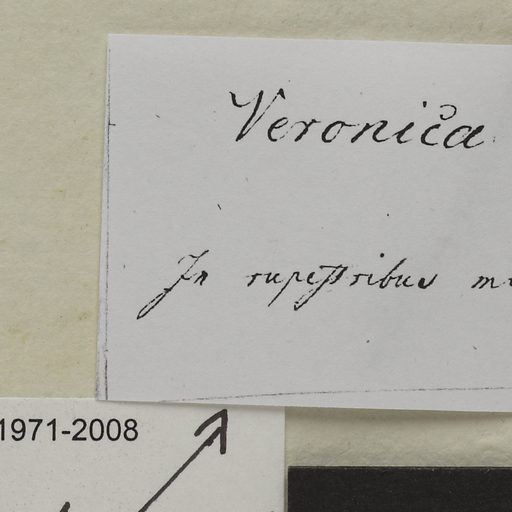 Veronica
In rupestribus
1971-2008